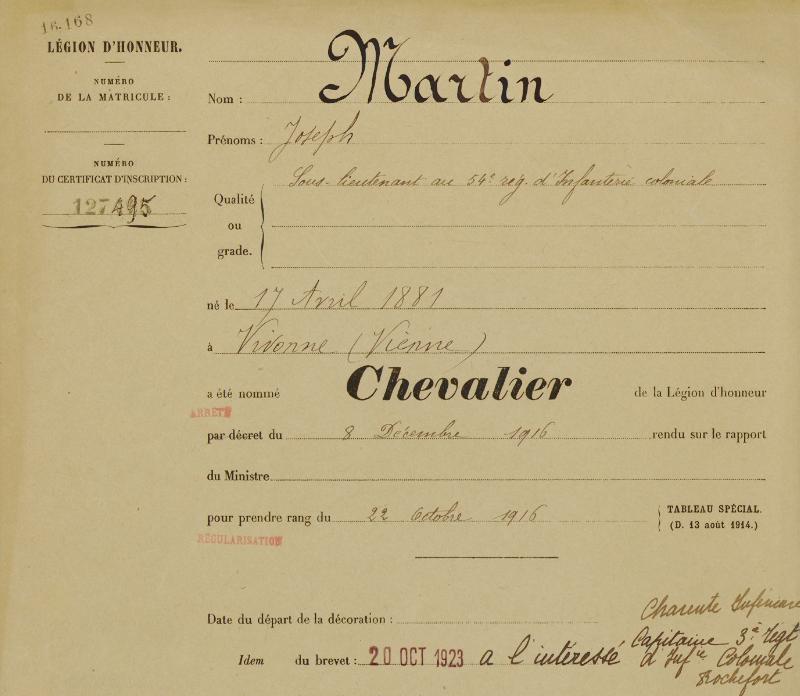 16.168
LÉGION D'HONNEUR.
NUMÉRO
DE LA MATRICULE :
NUMÉRO
DU CERTIFICAT D'INSCRIPTION :
127495
Nom : Martin
Prénoms : Joseph
Qualité
ou
grade.
Sous-lieutenant au 54e rég. d'Infanterie coloniale
né le 17 Avril 1881
à Vivonne (Vienne)
a été nommé Chevalier de la Légion d'honneur
ARRETÉ
par décret du 8 Décembre 1916 rendu sur le rapport
du Ministre
pour prendre rang du 22 Octobre 1916
TABLEAU SPÉCIAL.
(D. 13 août 1914.)
RÉGULARISATION
Date du départ de la décoration :
Idem du brevet : 20 OCT 1923 a l'intéressé
Charente Inférieure
Capitaine 3e Regt
d'Infie Coloniale
Rochefort